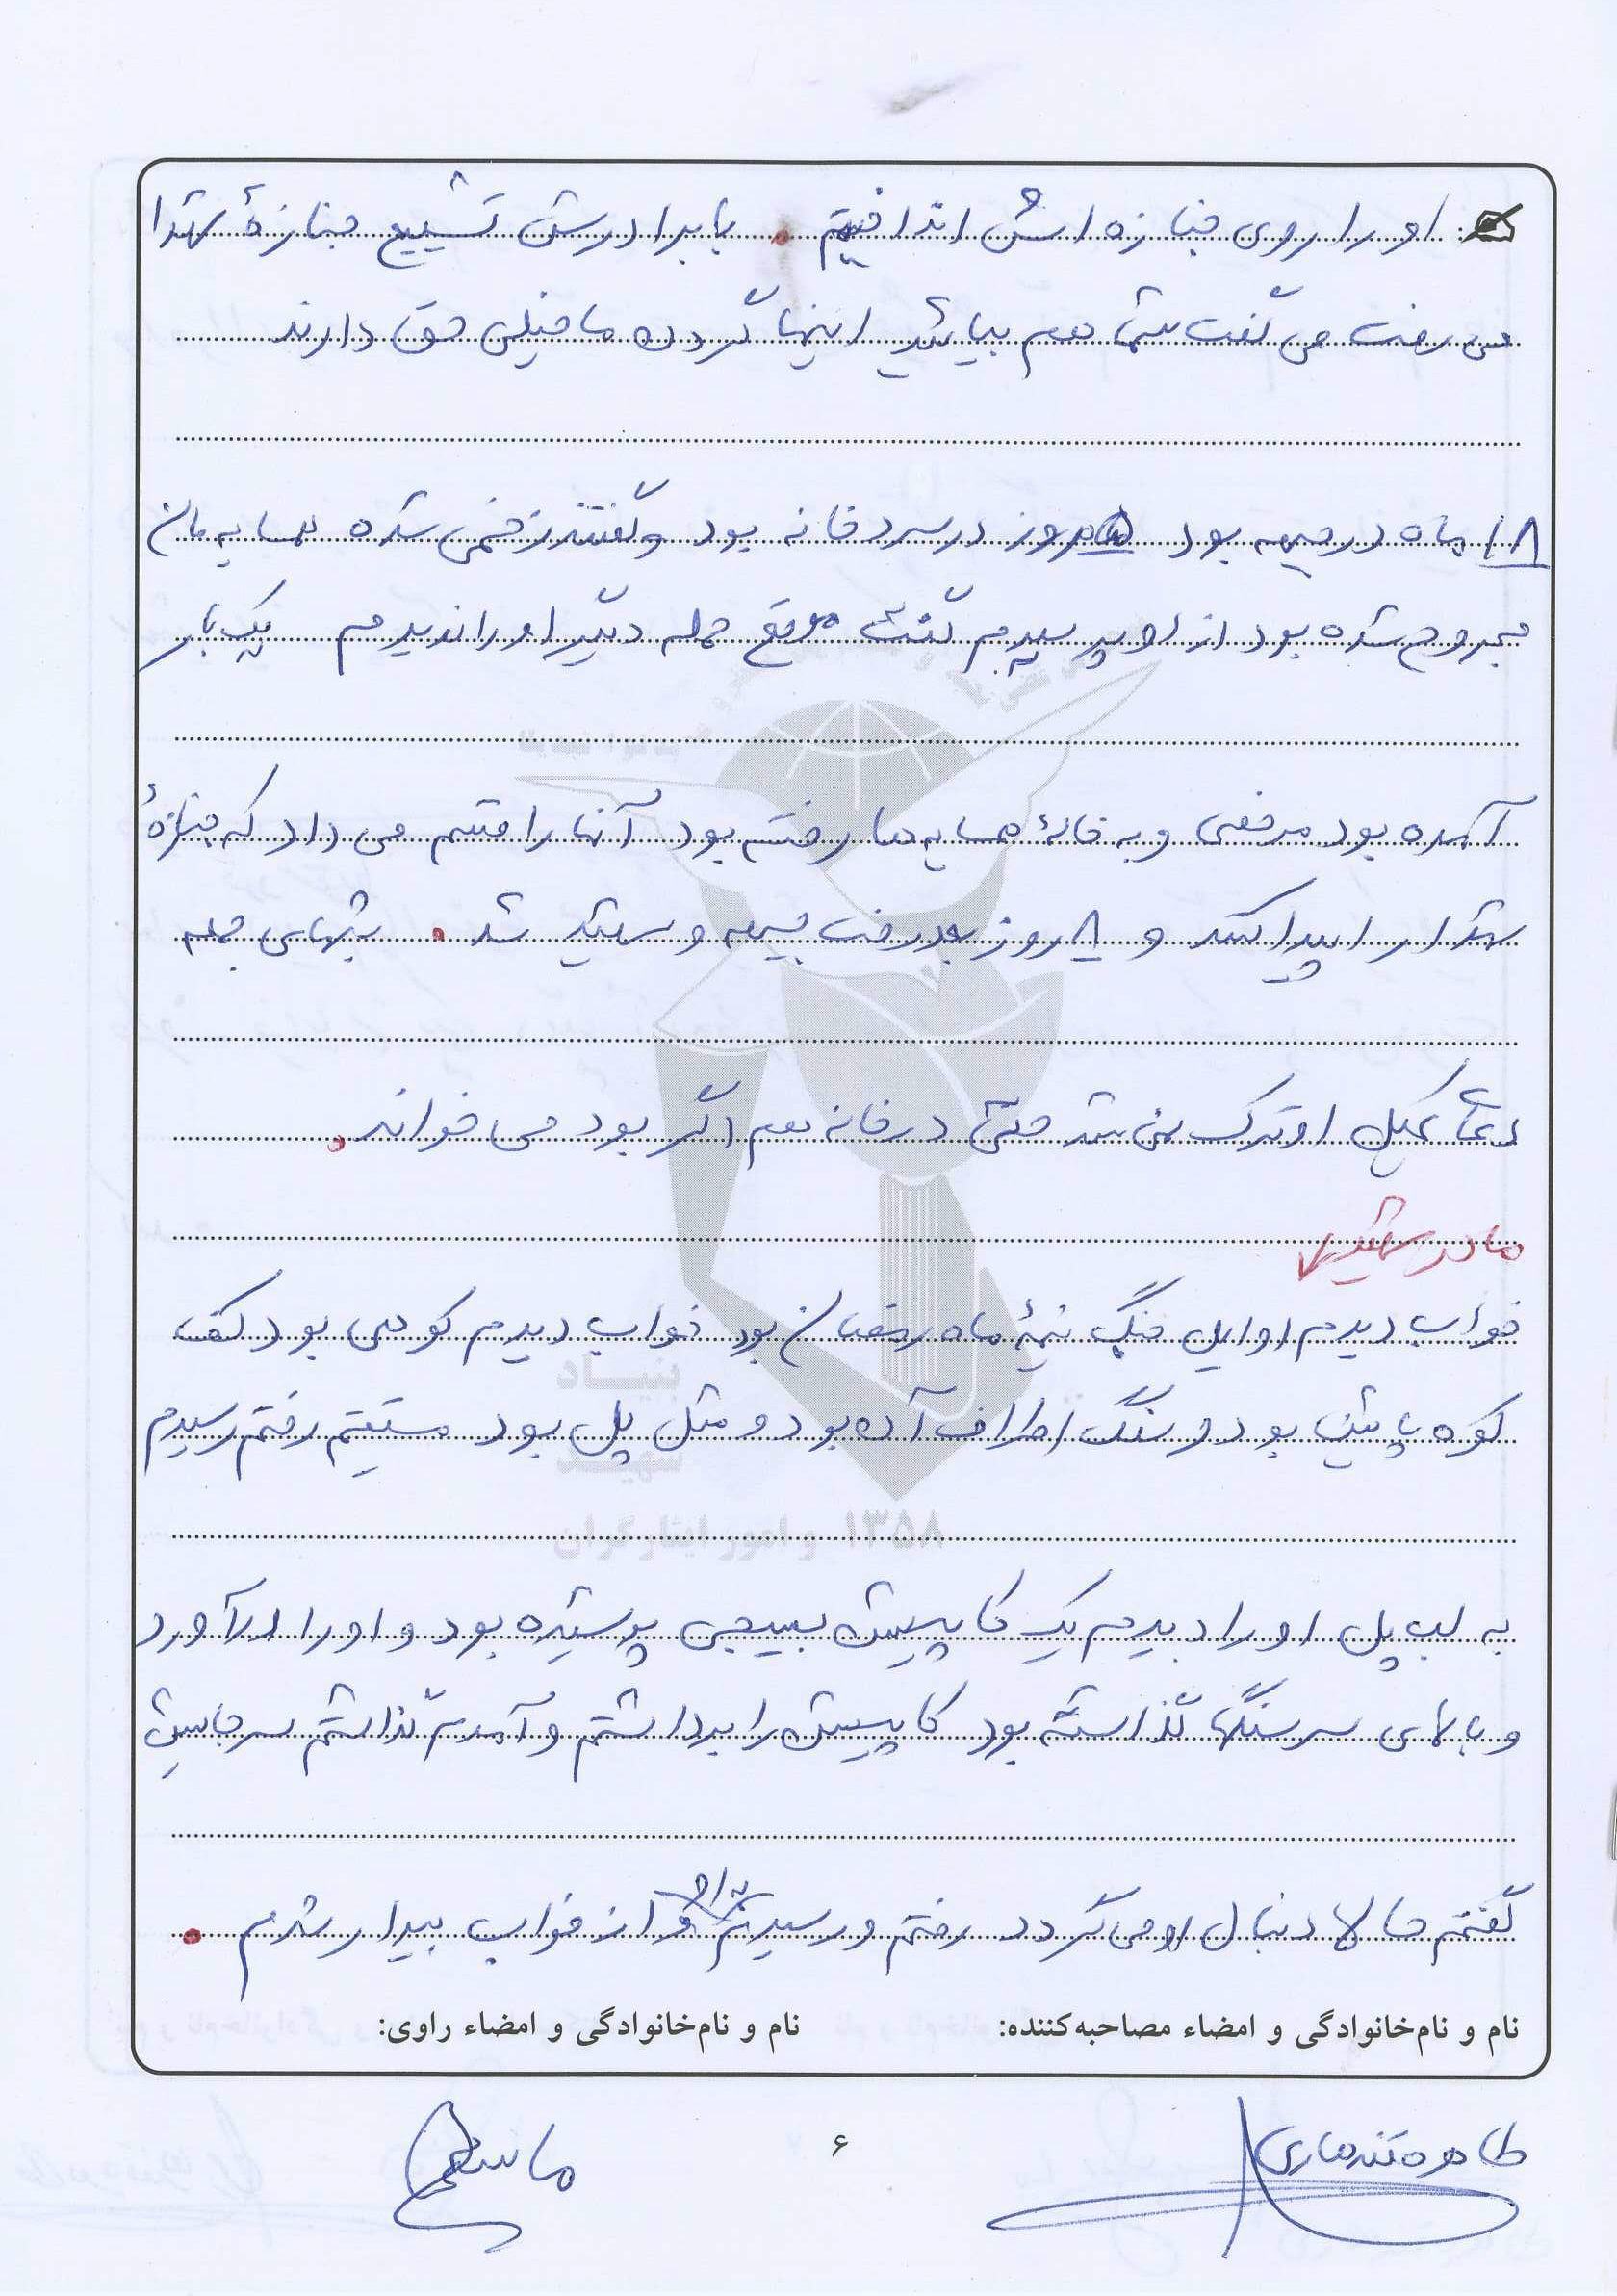 او را روی جنازه اش انداختیم . با برادرش تشییع جنازهٔ شهدا
می رفت می گفت شما هم بیائید اینها گردن ما خیلی حق دارند
۱۸ ماه در جبهه بود روز در سردخانه بود و گفتند زخمی شده همسایه مان
مجروح شده بود از او پرسیدم گفت موقع حمله دیگر او را ندیدم یک بار
آمده بود مرخصی و به خانهٔ همسایه ها رفته بود آنها را قسم می داد که جنازهٔ
شهدا را پیدا کنند و ۸ روز بعد رفت جبهه و شهید شد . شبهای جمعه
دعای کمیل او ترک نمی شد حتی در خانه هم اگر بود می خواند .
مادر شهید
خواب دیدم اوایل جنگ نیمهٔ ماه رمضان بود خواب دیدم کوهی بود کف
کوه پائین بود و سنگ اطراف آن بود و مثل پل بود مستقیم رفتم رسیدم
به لب پل او را دیدم یک کاپیشن بسیجی پوشیده بود و او را درآورد
و بالای سر سنگها گذاشته بود کاپیشن را برداشتم و آمدم گذاشتم سر جایش
گفتم حالا دنبال او می گردد رفتم و رسیدم به او از خواب بیدار شدم .
نام و نام‌خانوادگی و امضاء مصاحبه‌کننده: نام و نام‌خانوادگی و امضاء راوی:
طاهره قندهاری
۶
بنیاد
شهید
و امور ایثارگران ۱۳۵۸